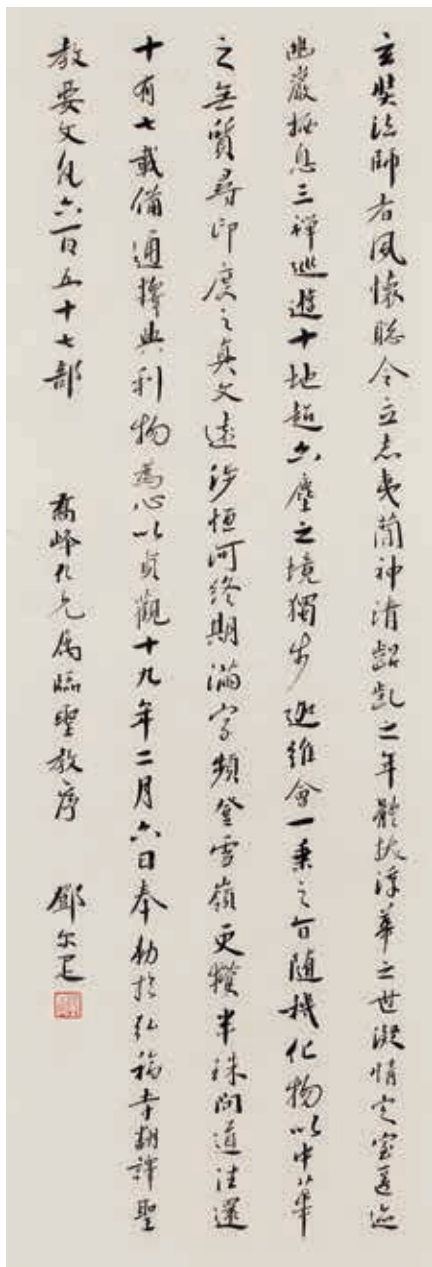 玄奘法師者夙懷聰令立志夷簡神清齠齔之年體拔浮華之世凝情定室匿迹
幽巖栖息三禪巡遊十地超六塵之境獨步迦維會一乘之旨隨機化物以中華
之無質尋印度之真文遠涉恒河終期滿字頻登雪嶺更獲半珠問道往還
十有七載備通釋典利物為心以貞觀十九年二月六日奉勅於弘福寺翻譯聖
教要文凡六百五十七部 喬峰仁兄属臨聖教序 鄧尔疋